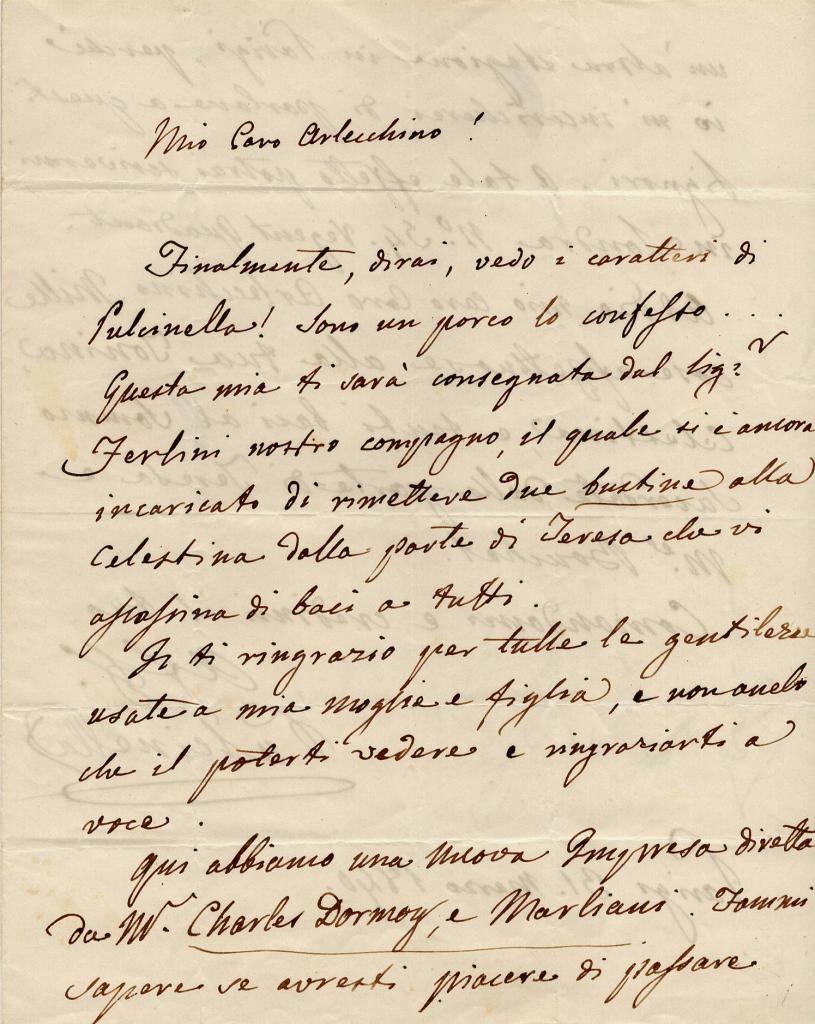 Mio Caro Arlecchino!
Finalmente, dirai, vedo i caratteri di
Pulcinella! Sono un porco lo confesso . . .
Questa mia ti sarà consegnata dal Sig.r
Ferlini nostro compagno, il quale si è ancora
incaricato di rimettere due bustine alla
Celestina dalla parte di Teresa che vi
assassina di baci a tutti.
Io ti ringrazio per tutte le gentilezze
usate a mia moglie e figlia, e non anelo
che il poterti vedere e ringraziarti a
voce.
Qui abbiamo una nuova Impresa diretta
da Mr. Charles Dormoy, e Marliani. Fammi
sapere se avresti piacere di passare